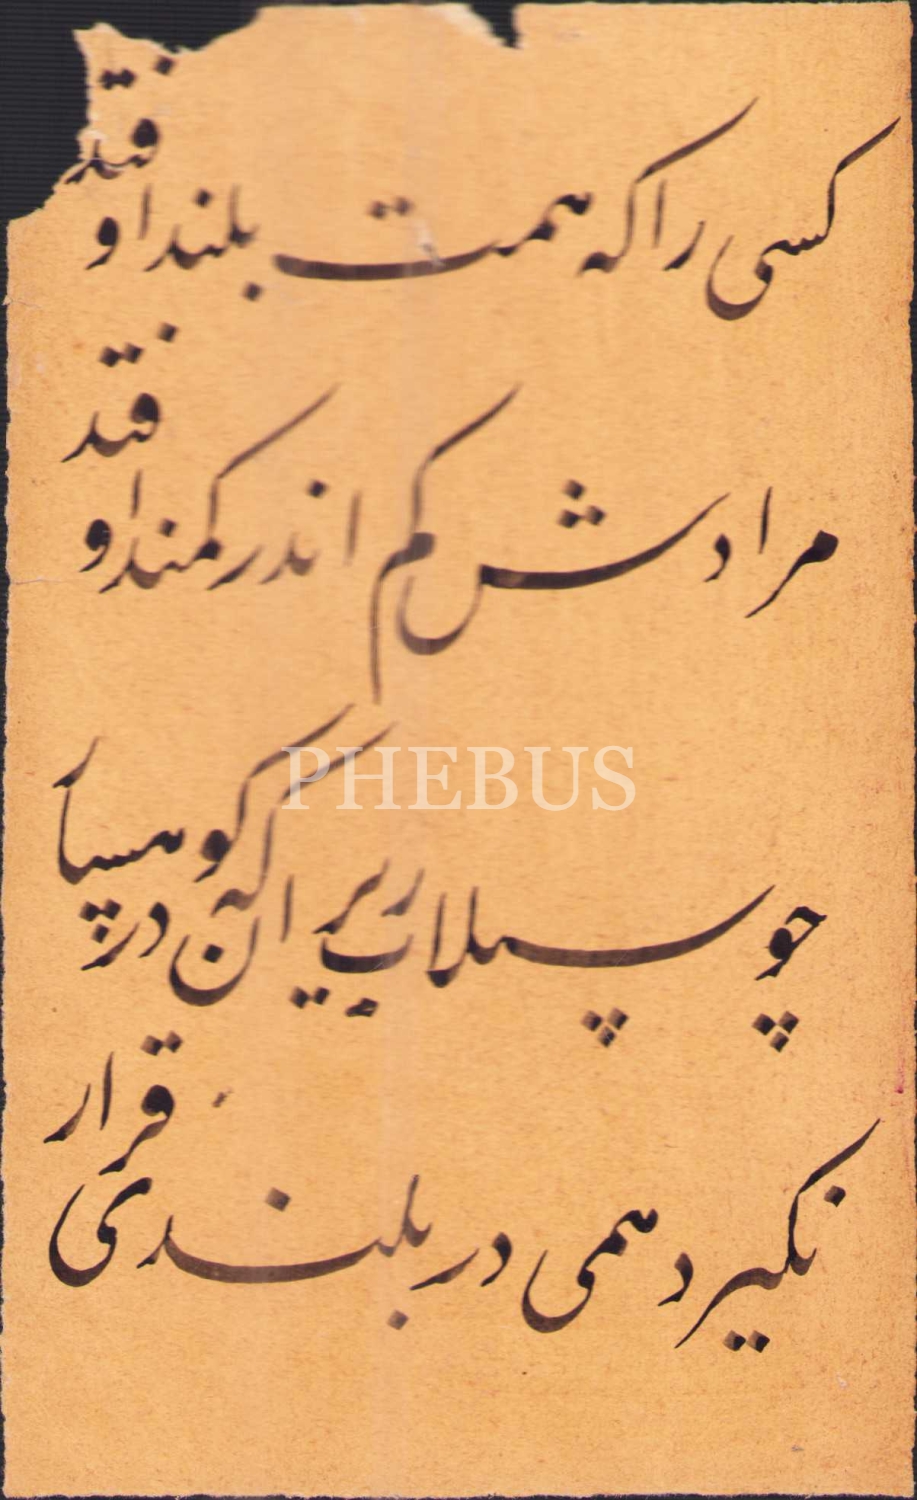 کسی را که همت بلند اوفتد
مرادش کم اندر کمند اوفتد
چو سیلاب ریزان که در کوهسار
PHEBUS
نگیرد همی در بلندی قرار